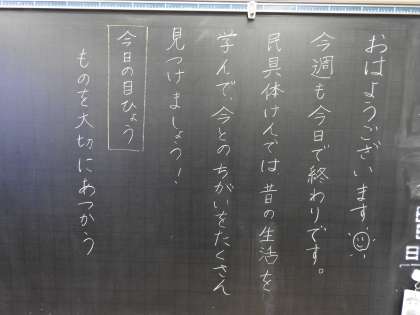 おはようございます
今週も今日で終わりです。
民具体けんでは昔の生活を
学んで、今とのちがいをたくさん
見つけましょう!
今日の目ひょう
ものを大切にあつかう
日